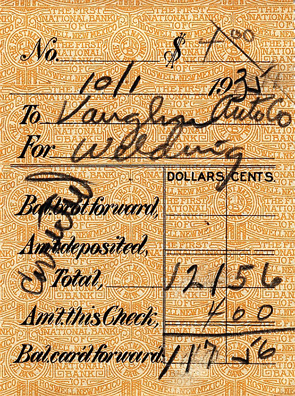 No. $ 4.00
10/1 1935
To Vaughn Auto Co
For Welding
DOLLARS CENTS
Bal. bro't forward,
Am't deposited,
Total, 121 56
Am't. this Check, 4 00
Bal. card forward 117 56